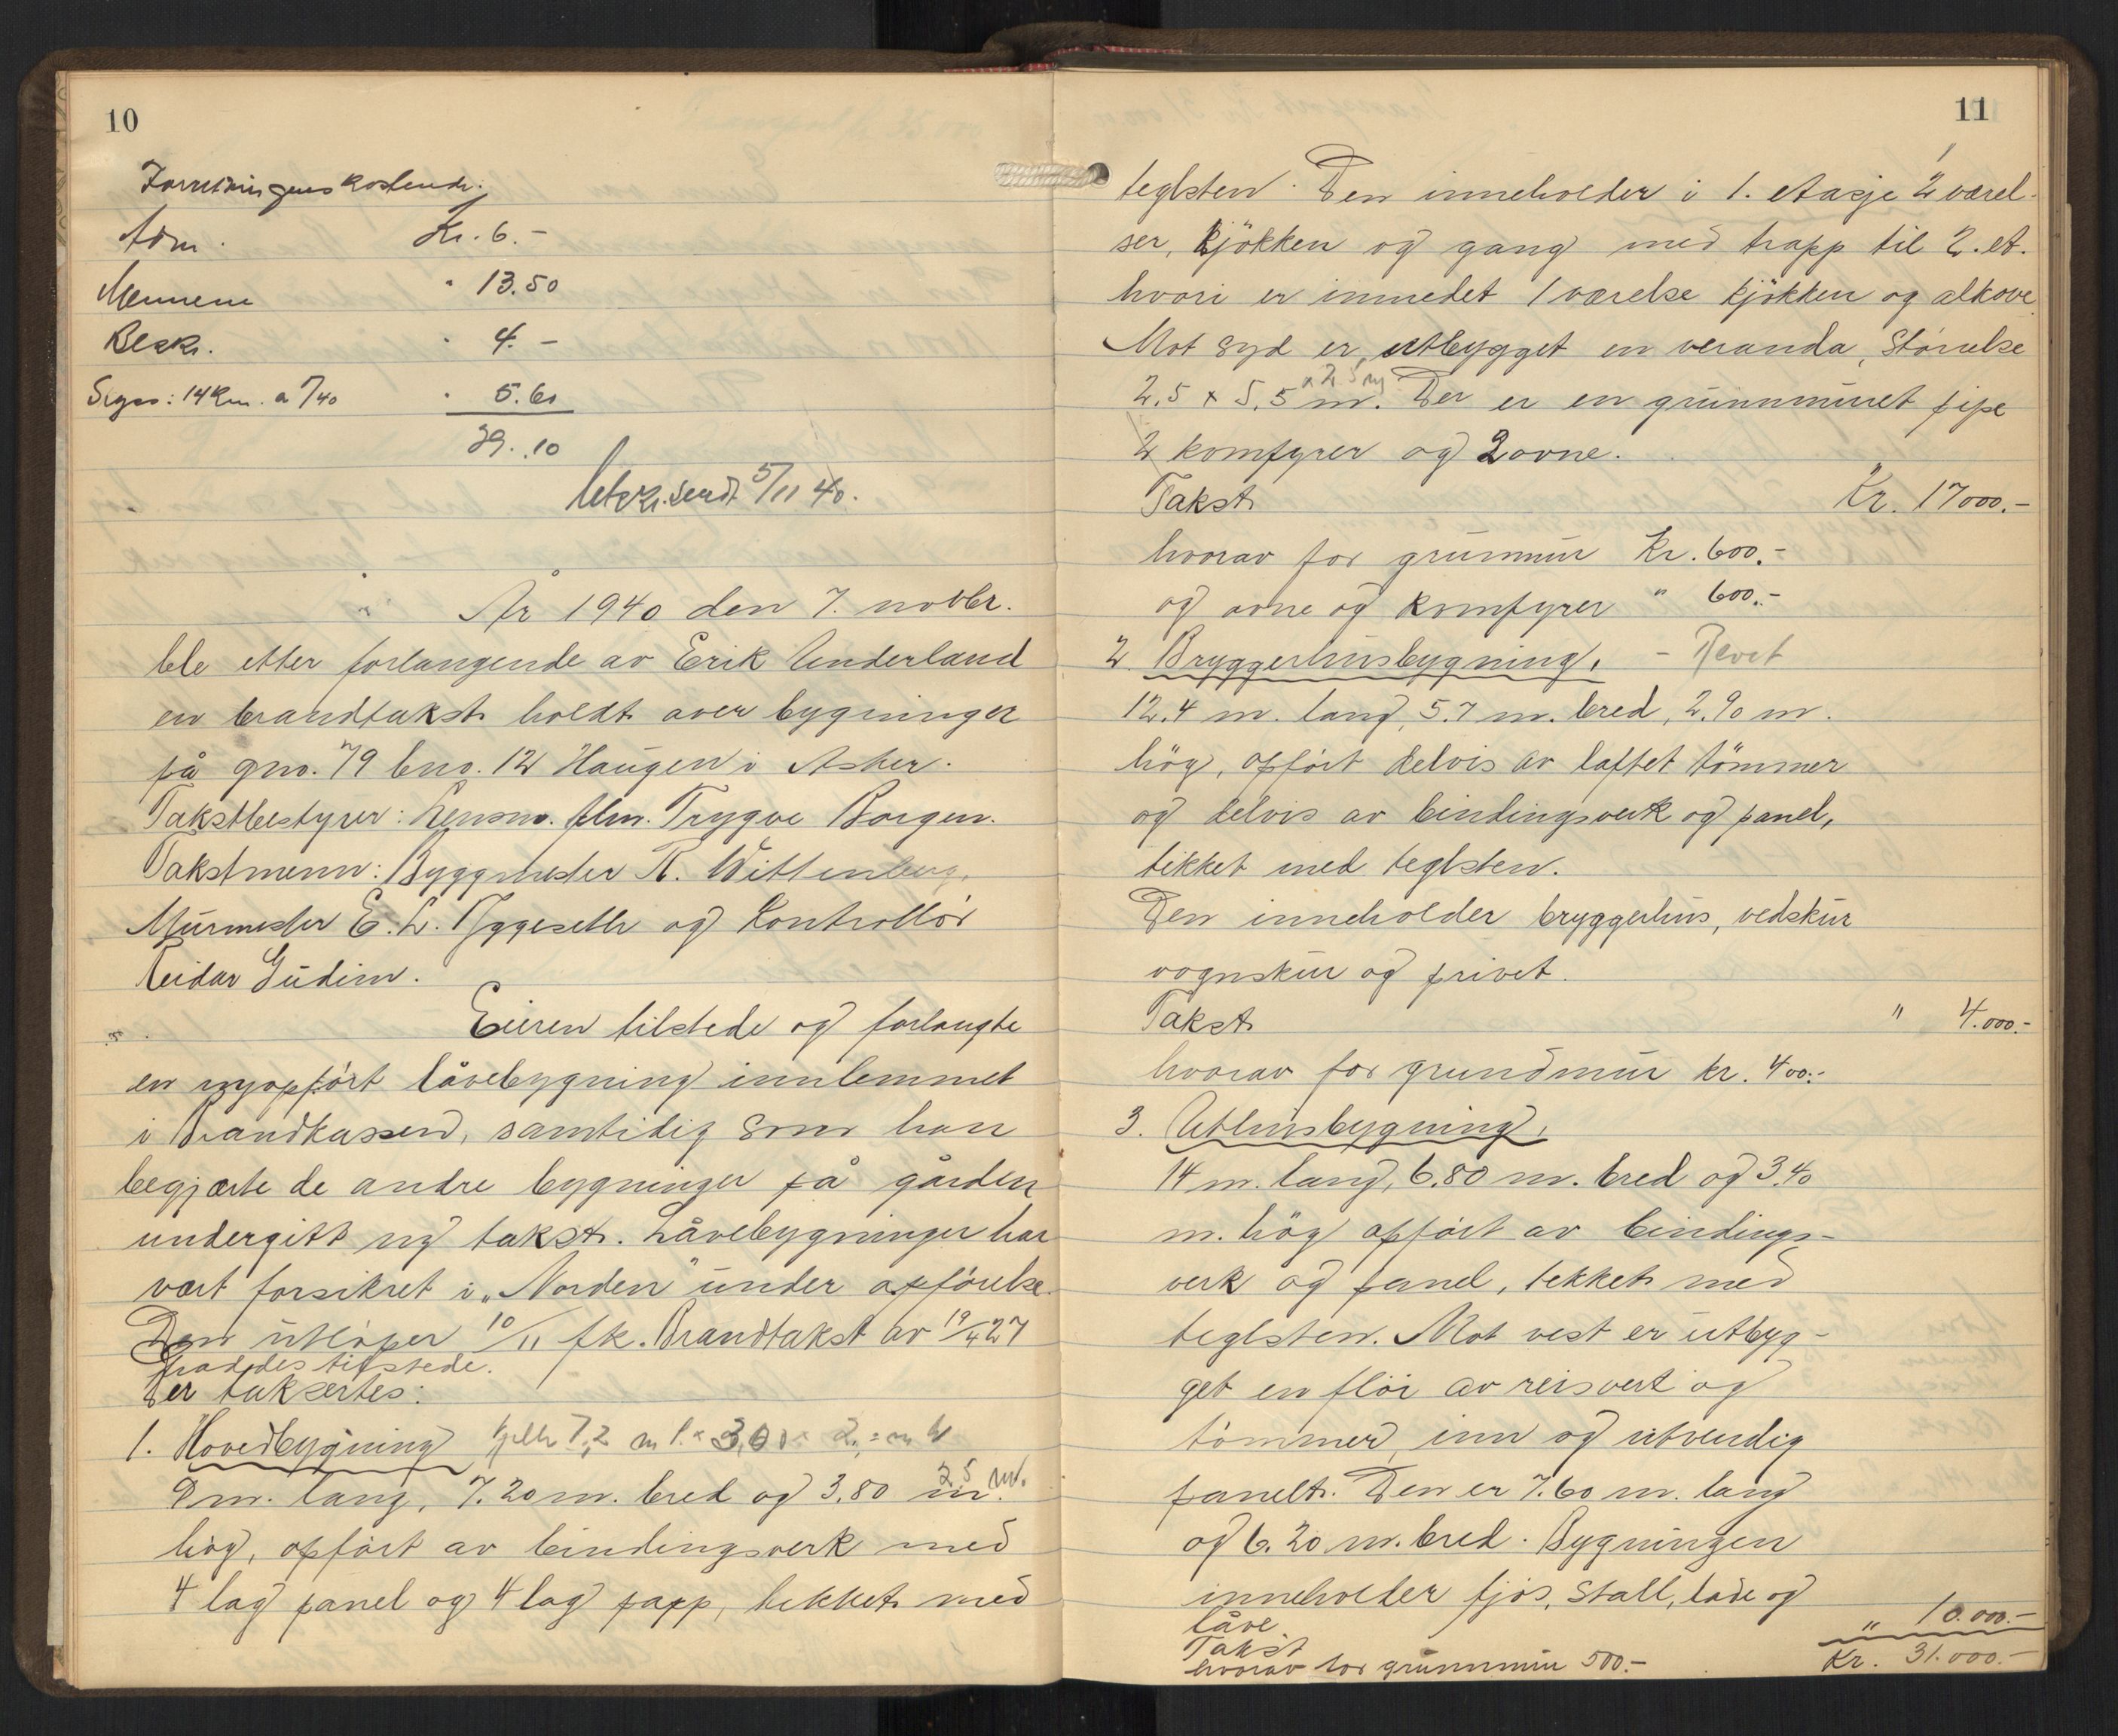 10
Forretningens kostende:
Adm. Kr. 6.-
Mennene " 13.50
Beskr. " 4.-
Skyss: 14 km. a /40 " 5.60
29.10
Utskr. sendt 5/11 40.
År 1940 den 7. novbr.
ble etter forlangende av Erik Underland
en brandtakst holdt over bygninger
på gno. 79 bno. 12 Haugen i Asker.
Takstbestyrer: Lensm. flm. Trygve Borgen.
Takstmenn: Byggmester R. Wittenberg,
Murmester E. L. Yggeseth og Kontrollör
Reidar Gudim.
Eieren tilstede og forlangte
en nyoppført låvebygning innlemmet
i Brandkassen, samtidig som han
begjærte de andre bygninger på gården
undergitt ny takst. Låvebygninger har
vært forsikret i „Norden" under opførelse.
Den utløper 10/11 fk. Brandtakst av 19/4 27
haddes tilstede.
Der taksertes:
1. Hovedbygning
9 m. lang, 7.20 m. bred og 3.80 m. 2,5 m.
høg, opført av bindingsverk med
4 lag panel og 4 lag papp, tekket med
11
teglsten. Den inneholder i 1. etasje 2 værel-
ser, kjökken og gang med trapp til 2. et.
hvori er innredet 1 værelse kjökken og alkove.
Mot syd er utbygget en veranda, Størrelse
2,5 x 5,5 m. x 2,5 m Der er en grunnmuret pipe
2 komfyrer og 2 ovne.
Takst Kr. 17000.-
hvorav for grunnmur Kr. 600.-
og ovne og komfyrer " 600.-
2. Bryggerhusbygning. - Revet
12.4 m. lang, 5.7 m. bred, 2.90 m.
hög, opført delvis av laftet tömmer
og delvis av bindingsverk og panel,
tekket med teglsten.
Den inneholder bryggerhus, vedskur
vognskur og privet.
Takst " 4.000.-
hvorav for grundmur kr. 400.-
3. Uthusbygning.
14 m. lang, 6.80 m. bred og 3.40
m. hög opført av bindings-
verk og panel, tekket med
teglsten. Mot vest er utbyg-
get en fløi av reisvert og
tömmer, inn og utvendig
panelt. Den er 7.60 m. lang
og 6.20 m. bred. Bygningen
inneholder fjøs, stall, lade og
låve.
Takst " 10.000.-
hvorav for grunnmur 500.- Kr. 31.000.-